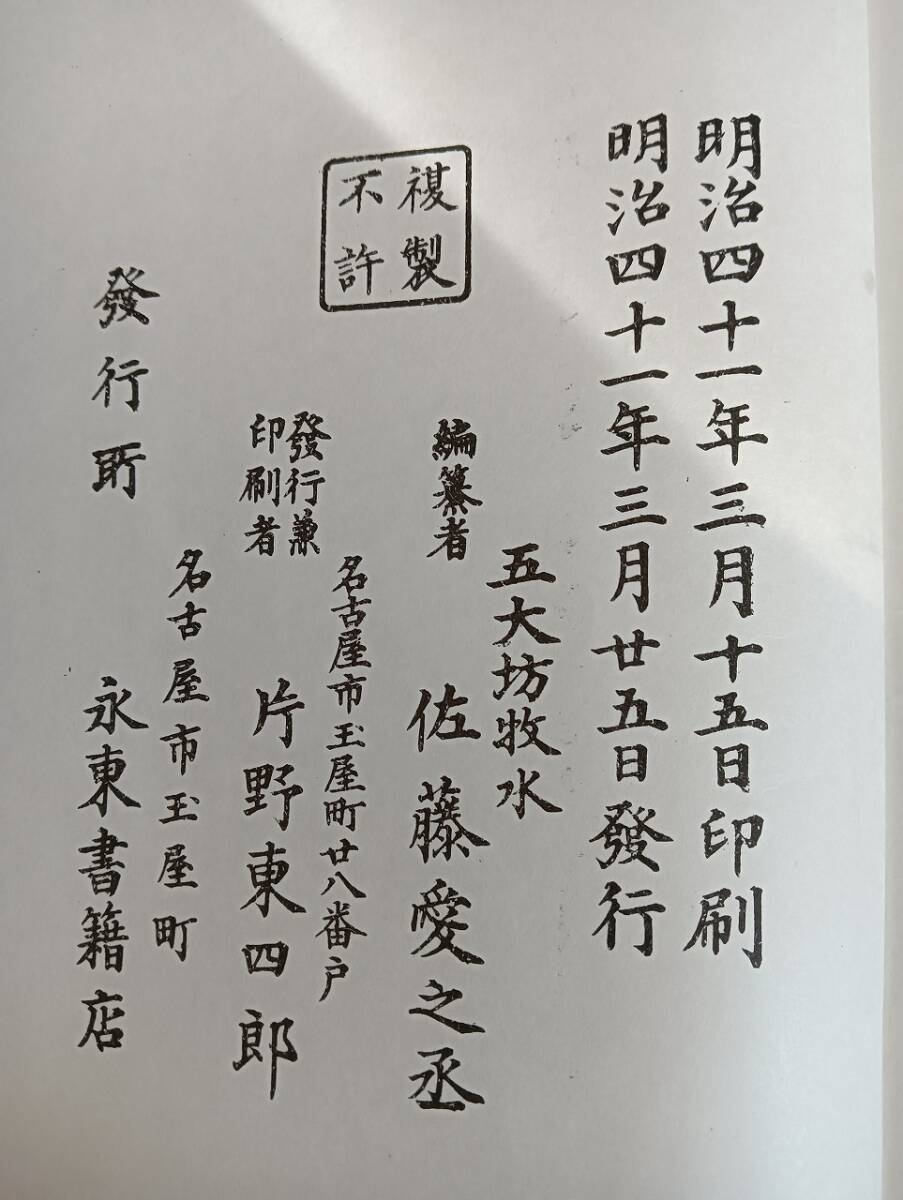 明治四十一年三月十五日印刷
明治四十一年三月廿五日發行
複製
不許
五大坊牧水
編纂者
佐藤愛之丞
名古屋市玉屋町廿八番戸
發行兼
印刷者
片野東四郎
名古屋市玉屋町
發行所
永東書籍店